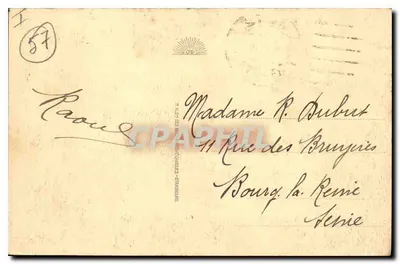 I
57
Raoul
Madame R. Dubut
11 Rue des Bruyères
Bourg la Reine
Seine
CPAPHIL